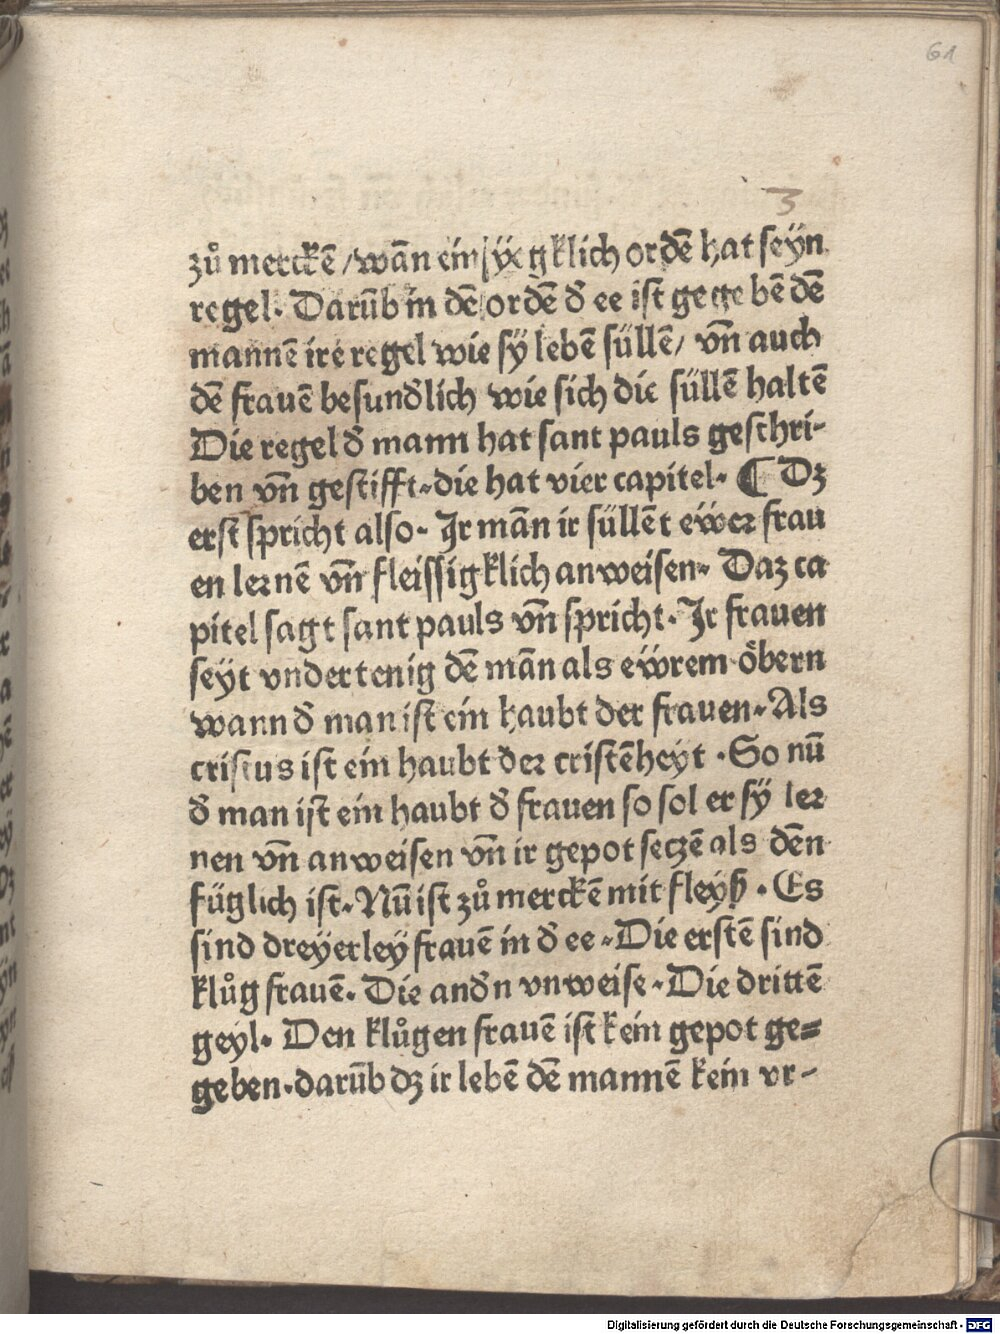 61
3
zů merckē / wān ein yegklich ordē hat seyn
regel. Darūb in dē ordē d̄ ee ist gegebē dē
mannē ire regel wie sÿ lebē süllē / vn̄ auch
dē frauē besund̄lich wie sich die süllē haltē
Die regel d̄ mann hat sant pauls geschri-
ben vn̄ gestifft. die hat vier capitel. ¶ Dz
erst spricht also. Jr mān ir süllēt eẅer frau
en lernē vn̄ fleissigklich anweisen. Daz ca
pitel sagt sant pauls vn̄ spricht. Jr frauen
seyt vndertenig dē mān als eẅrem öbern
wann d̄ man ist ein haubt der frauen. Als
cristus ist ein haubt der cristēheyt. So nū
d̄ man ist ein haubt d̄ frauen so sol er sÿ ler
nen vn̄ anweisen vn̄ ir gepot seczē als dēn
füglich ist. Nū ist zů merckē mit fleyß. Es
sind dreÿerleÿ frauē in d̄ ee. Die erstē sind
klůg frauē. Die and̄n vnweise. Die drittē
geyl. Den klůgen frauē ist kein gepot ge=
geben. darūb dz ir lebē dē mannē kein vr-
Digitalisierung gefördert durch die Deutsche Forschungsgemeinschaft - DFG